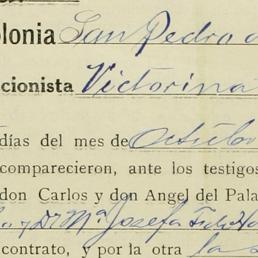 olonia San Pedro
cionista Victorina
días del mes de Octub
comparecieron, ante los testigos
don Carlos y don Angel del Pala
y Dª Mª Josefa
contrato, y por la otra la